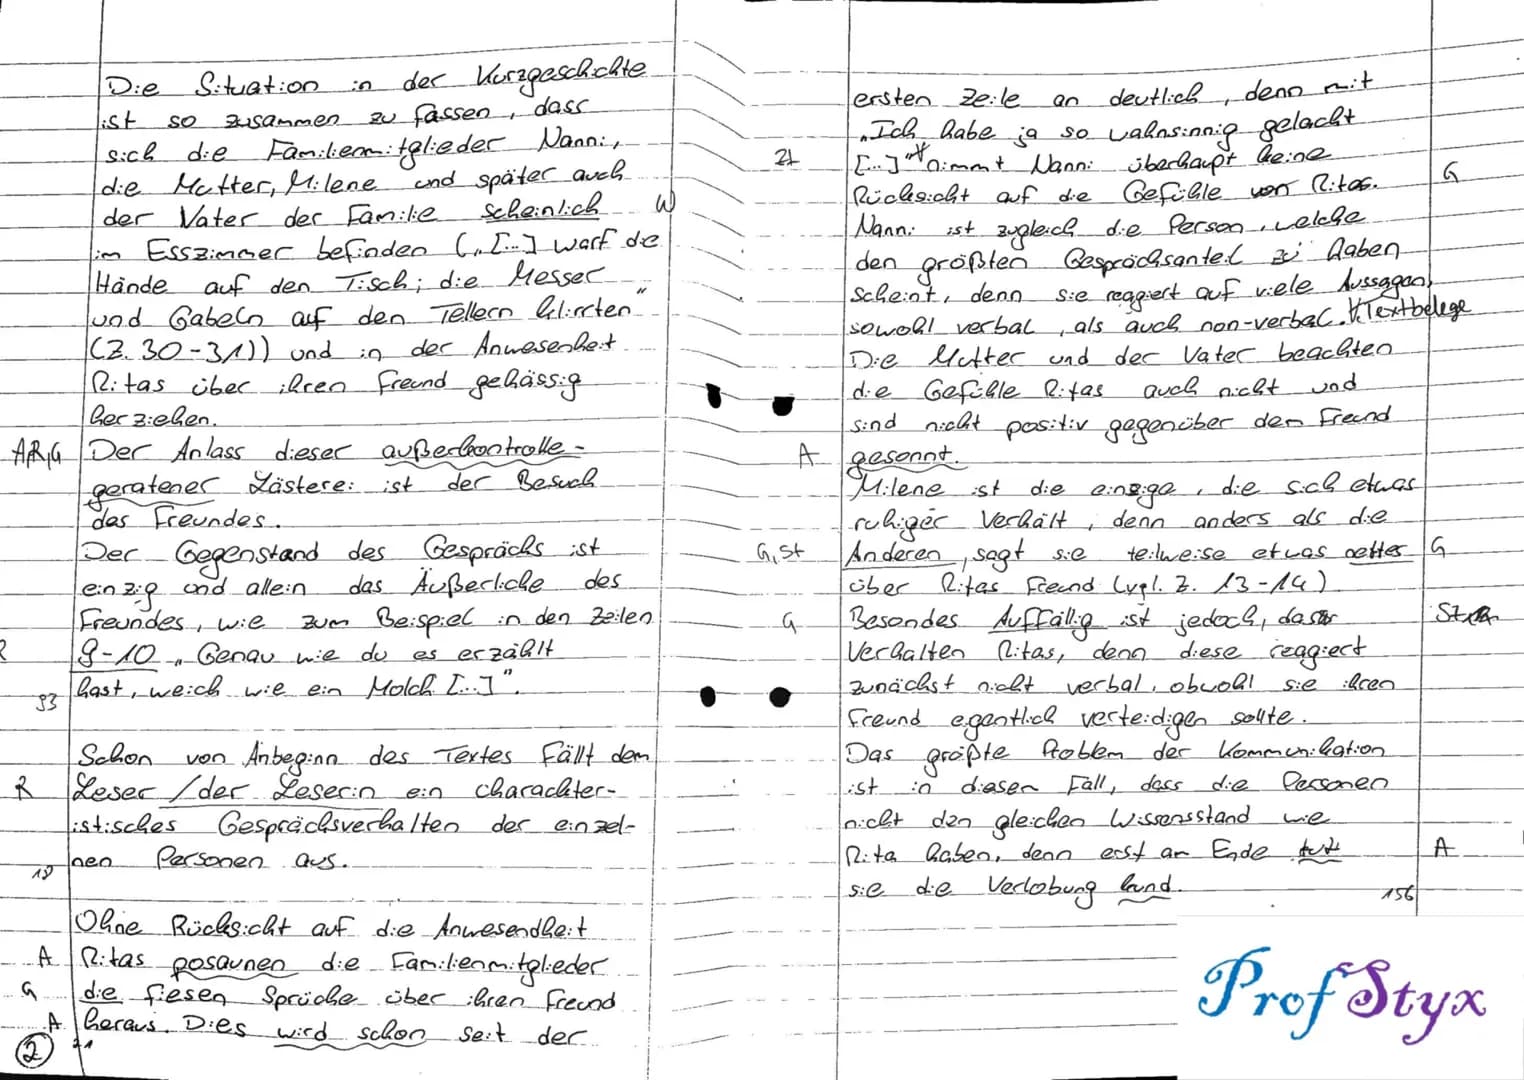 Die Situation in der Kurzgeschichte
ist so zusammen zu fassen, dass
sich die Familienmitglieder Nanni,
die Mutter, Milene und später auch
der Vater der Familie scheinlich W
im Esszimmer befinden („[...] warf die
Hände auf den Tisch; die Messer
und Gabeln auf den Tellern klirrten"
(Z. 30-31)) und in der Anwesenheit
Ritas über ihren Freund gehässig
her ziehen.
A,R,G Der Anlass dieser außerkontrolle-
geratener Lästerei ist der Besuch
des Freundes.
Der Gegenstand des Gesprächs ist
einzig und allein das Äußerliche des
Freundes, wie zum Beispiel in den Zeilen
R 9-10 „Genau wie du es erzählt
hast, weich wie ein Molch [...]".
93
Schon von Anbeginn des Textes fällt dem
R Leser / der Leserin ein charachter-
istisches Gesprächsverhalten der einzel-
nen Personen aus.
18
Ohne Rücksicht auf die Anwesendheit
A Ritas posaunen die Familienmitglieder
G die fiesen Sprüche über ihren Freund
A heraus. Dies wird schon seit der
2 21
ersten Zeile an deutlich, denn mit
„Ich habe ja so wahnsinnig gelacht
21 [...]" nimmt Nanni überhaupt keine
Rücksicht auf die Gefühle von Ritas. G
Nanni ist zugleich die Person, welche
den größten Gesprächsanteil zu haben
scheint, denn sie reagiert auf viele Aussagen,
sowohl verbal, als auch non-verbal. Textbelege
Die Mutter und der Vater beachten
die Gefühle Ritas auch nicht und
sind nicht positiv gegenüber dem Freund
A gesonnt.
Milene ist die einzige, die sich etwas
ruhiger Verhält, denn anders als die
G, St Anderen, sagt sie teilweise etwas nettes G
über Ritas Freund (vgl. Z. 13-14)
G Besondes Auffällig ist jedoch, das
Verhalten Ritas, denn diese reagiert
zunächst nicht verbal, obwohl sie ihren
Freund egentlich verteidigen sollte.
Das größte Problem der Kommunikation
ist in diesen Fall, dass die Personen
nicht den gleichen Wissensstand wie
Rita haben, denn erst am Ende tut A
sie die Verlobung kund.
156
Prof Styx